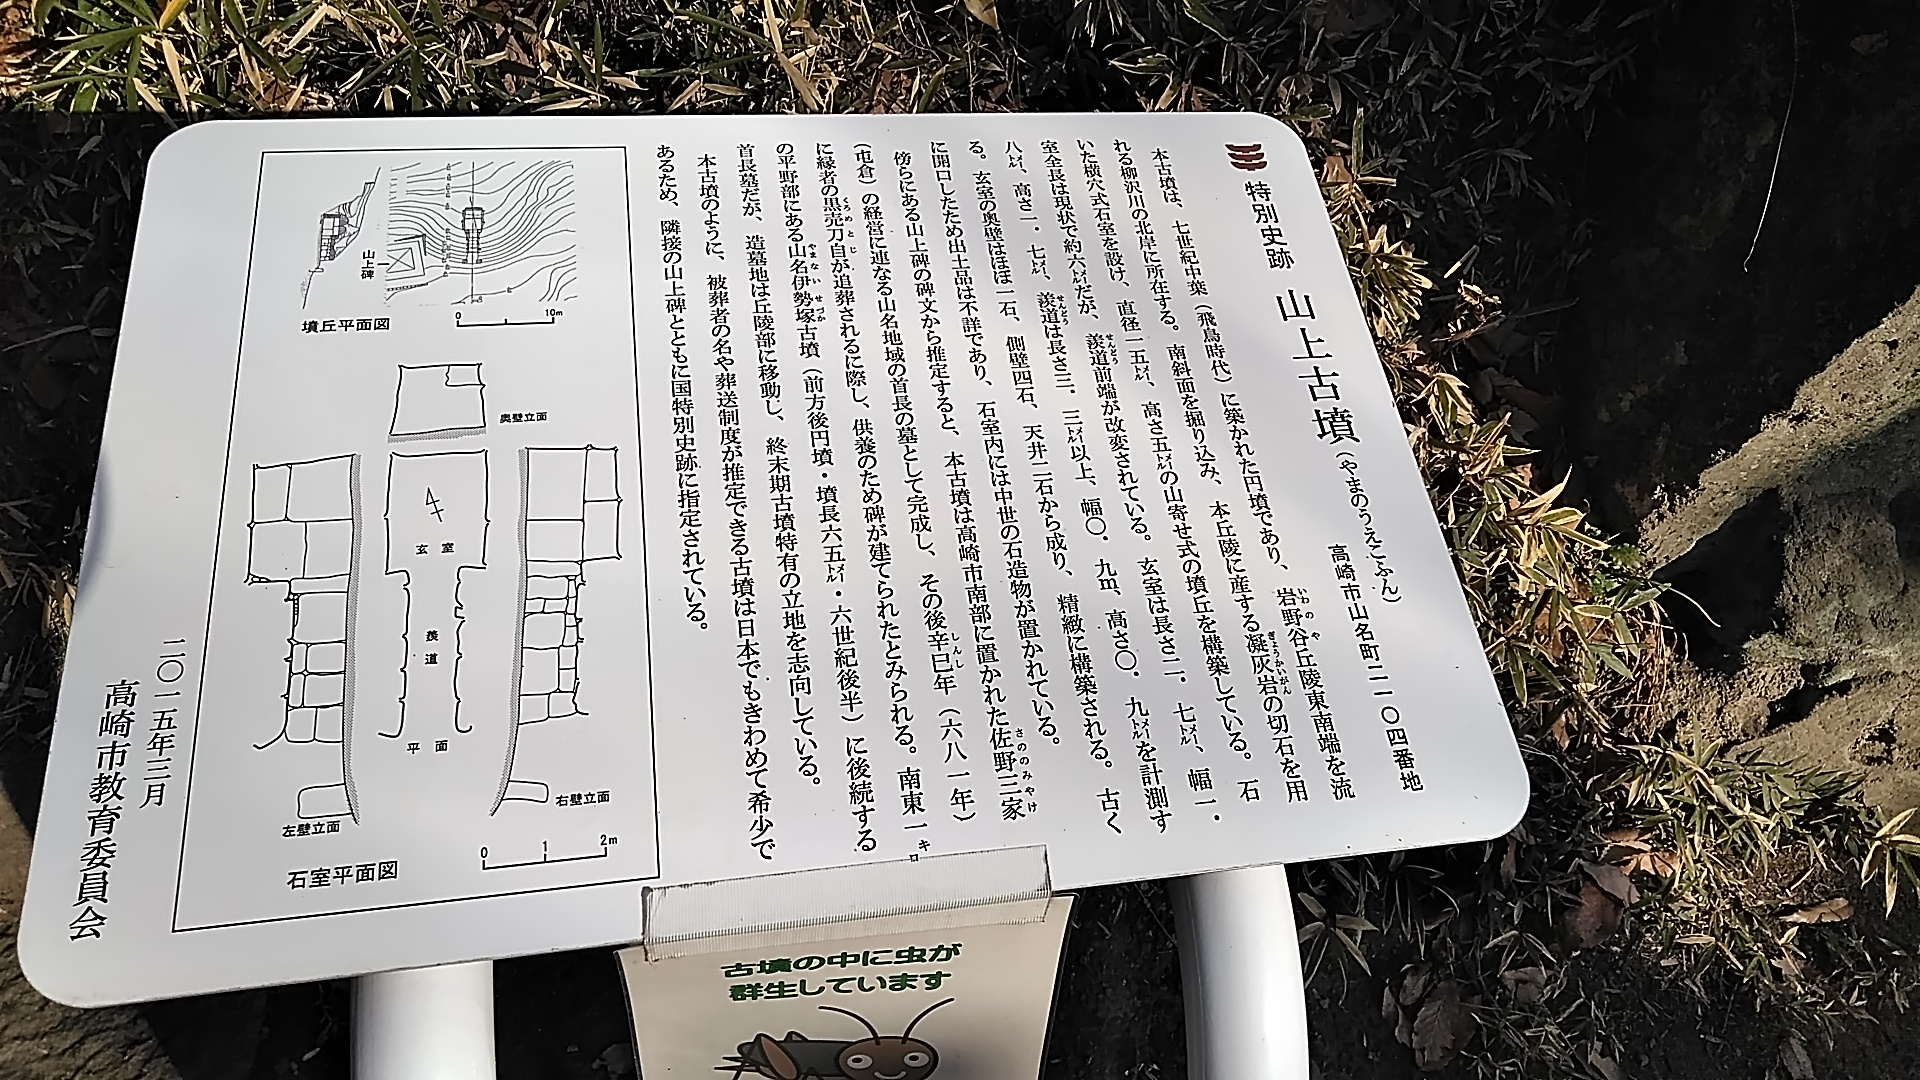 特別史跡 山上古墳（やまのうえこふん）
高崎市山名町二一〇四番地
本古墳は、七世紀中葉（飛鳥時代）に築かれた円墳であり、岩野谷丘陵東南端を流
れる柳沢川の北岸に所在する。南斜面を掘り込み、本丘陵に産する凝灰岩の切石を用
いた横穴式石室を設け、直径一五㍍、高さ五㍍の山寄せ式の墳丘を構築している。石
室全長は現状で約六㍍だが、羨道前端が改変されている。玄室は長さ二．七㍍、幅一．
八㍍、高さ一．七㍍、羨道は長さ三．三㍍以上、幅〇．九m、高さ〇．九㍍を計測す
る。玄室の奥壁はほぼ一石、側壁四石、天井二石から成り、精緻に構築される。古く
に開口したため出土品は不詳であり、石室内には中世の石造物が置かれている。
傍らにある山上碑の碑文から推定すると、本古墳は高崎市南部に置かれた佐野三家
（屯倉）の経営に連なる山名地域の首長の墓として完成し、その後辛巳年（六八一年）
に縁者の黒売刀自が追葬されるに際し、供養のため碑が建てられたとみられる。南東一㌔
の平野部にある山名伊勢塚古墳（前方後円墳・墳長六五㍍・六世紀後半）に後続する
首長墓だが、造墓地は丘陵部に移動し、終末期古墳特有の立地を志向している。
本古墳のように、被葬者の名や葬送制度が推定できる古墳は日本でもきわめて希少で
あるため、隣接の山上碑とともに国特別史跡に指定されている。
山上碑
墳丘平面図
0 10m
奥壁立面
玄室
羨道
平面
左壁立面
右壁立面
石室平面図
0 1 2m
二〇一五年三月
高崎市教育委員会
古墳の中に虫が
群生しています